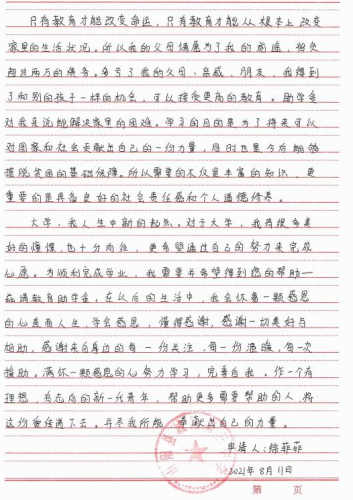 只有教育才能改变命运，只有教育才能从根本上改变
家里的生活状况。所以我的父母情愿为了我的前途，担负
起几万的债务。多亏了我的父母、亲戚、朋友，我得到
了和别的孩子一样的机会，可以接受更高的教育。助学金
对我来说能解决家里的困难。学习的目的是为了将来可以
对国家和社会贡献出自己的一份力量，同时也是今后能够
摆脱贫困的基础保障。所以需要的不仅是丰富的知识，更
重要的是具备良好的社会责任感和个人道德修养。
大学，我人生中新的起点。对于大学，我有很多美
好的憧憬，也十分向往，更希望通过自己的努力来完成
心愿。为顺利完成学业，我需要并希望得到您的帮助—
在请教育助学金，在以后的生活中，我会怀着一颗感恩
的心走着人生，学会感恩，懂得感谢，感谢一切美好与
相助，感谢来自身边的每一份关注，每一份温暖，每一次
援助。满怀一颗感恩的心努力学习，完善自我。作一个有
理想，有志向的新一代青年，帮助更多需要帮助的人，将
这份爱传递下去。并尽我所能，奉献出自己的力量。
申请人：徐菲菲
2021年8月11日
第 页